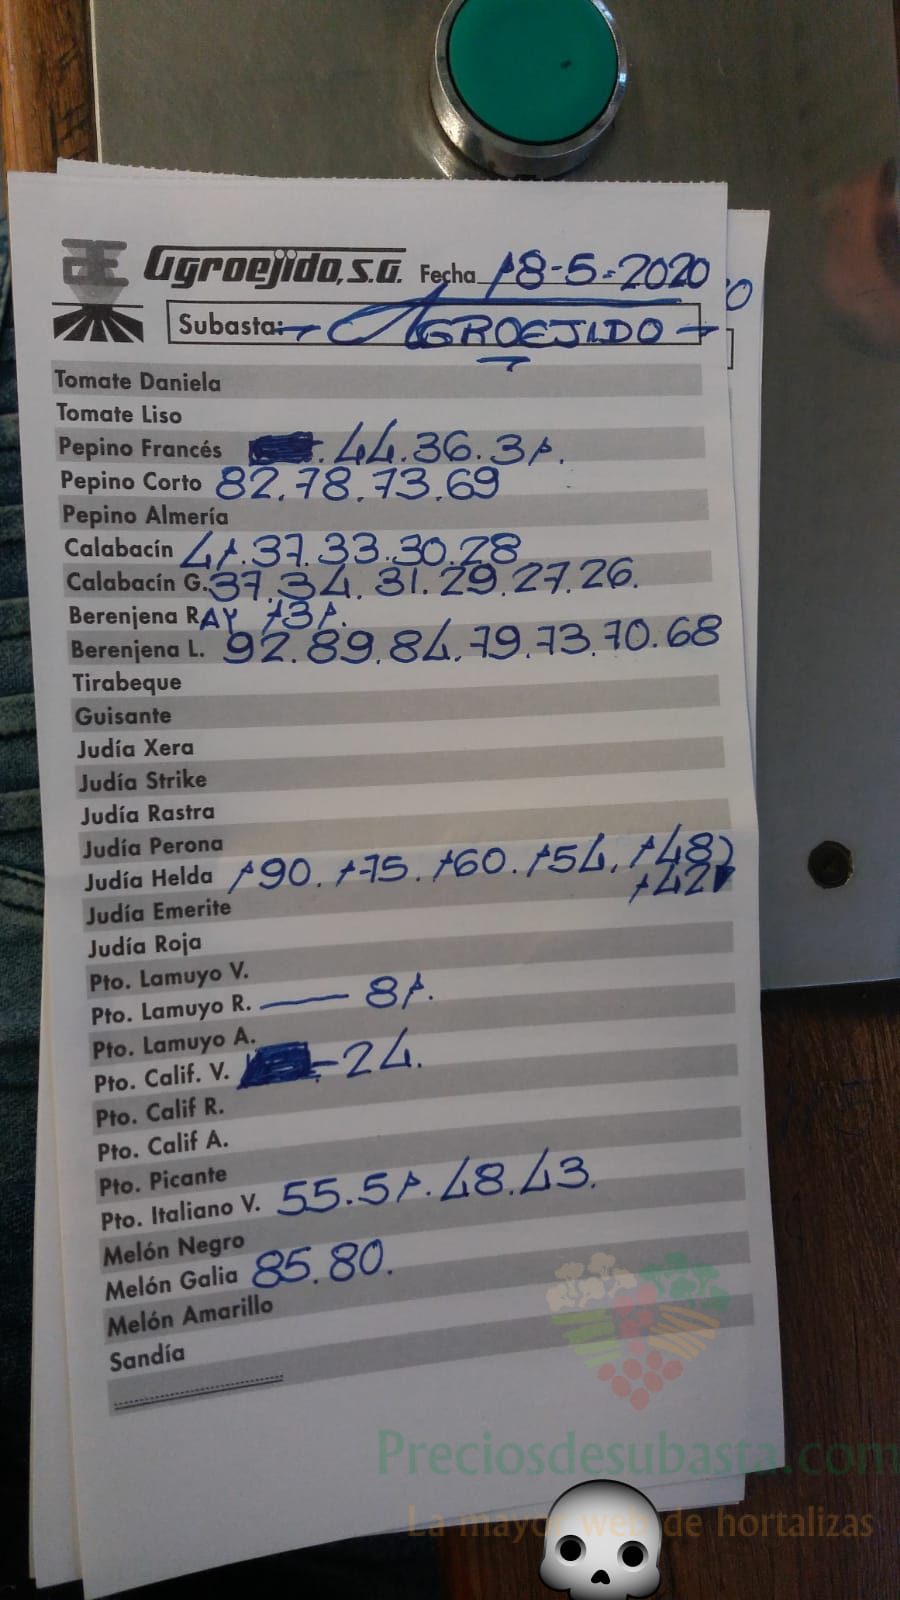 Agroejido, S.A. Fecha 18-5-2020
Subasta: AGROEJIDO
Tomate Daniela
Tomate Liso
Pepino Francés . 44. 36. 31.
Pepino Corto 82. 78. 73. 69
Pepino Almería
Calabacín 41. 37. 33. 30. 28
Calabacín G. 37. 34. 31. 29. 27. 26.
Berenjena RAY 131.
Berenjena L. 92. 89. 84. 79. 73. 70. 68
Tirabeque
Guisante
Judía Xera
Judía Strike
Judía Rastra
Judía Perona
Judía Helda 190. 175. 160. 154. 148)
142
Judía Emerite
Judía Roja
Pto. Lamuyo V.
Pto. Lamuyo R. — 81.
Pto. Lamuyo A.
Pto. Calif. V. -24.
Pto. Calif R.
Pto. Calif A.
Pto. Picante
Pto. Italiano V. 55. 51. 48. 43.
Melón Negro
Melón Galia 85. 80.
Melón Amarillo
Sandía
Preciosdesubasta.com
La mayor web de hortalizas